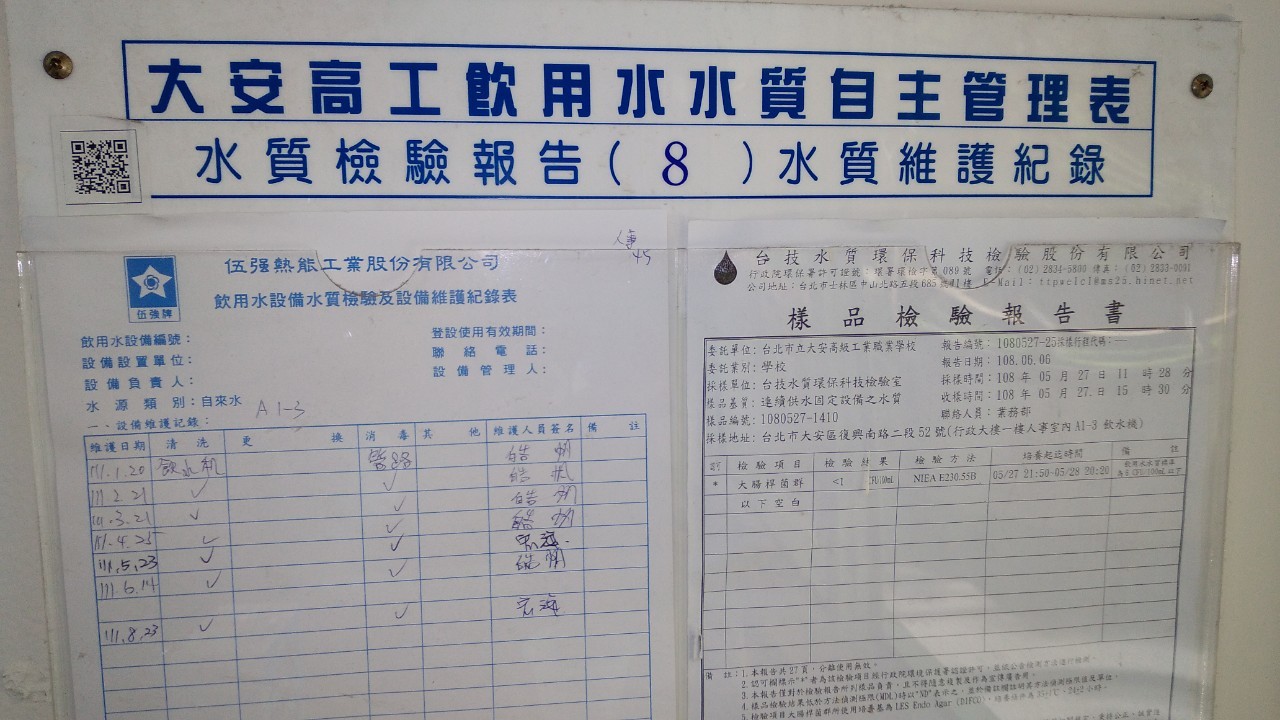 大安高工飲用水水質自主管理表
水質檢驗報告( 8 )水質維護紀錄
伍強牌
伍强熱能工業股份有限公司
飲用水設備水質檢驗及設備維護紀錄表
飲用水設備編號：
設備設置單位：
設備負責人：
水源類別：自來水
A1-3
登設使用有效期間：
聯絡電話：
設備管理人：
一、設備維護記錄：
維護日期 清洗 更換 消毒 其他 維護人員簽名 備註
111.1.20 飲水機 管路
111.2.21 ✓ ✓
111.3.21 ✓ ✓
111.4.25 ✓ ✓
111.5.23 ✓ ✓
111.6.14 ✓ ✓
111.8.23 ✓ ✓
台技水質環保科技檢驗股份有限公司
行政院環保署許可證號：環署環檢字第089號 電話：(02)2834-5800 傳真：(02)2833-0091
公司地址：台北市士林區中山北路五段685號41樓 E-Mail：ttpwelcl@ms25.hinet.net
樣品檢驗報告書
委託單位：台北市立大安高級工業職業學校
委託業別：學校
採樣單位：台技水質環保科技檢驗室
樣品基質：連續供水固定設備之水質
樣品編號：1080527-1410
採樣地址：台北市大安區復興南路二段52號(行政大樓一樓人事室內A1-3 飲水機)
報告編號：1080527-25採樣行程代碼：—
報告日期：108.06.06
採樣時間：108 年 05 月 27 日 11 時 28 分
收樣時間：108 年 05 月 27 日 15 時 30 分
聯絡人員：業務部
檢驗項目 檢驗結果 檢驗方法 培養起迄時間 備註
* 大腸桿菌群 <1 CFU/100ml NIEA E230.55B 05/27 21:50-05/28 20:20 飲用水水質標準為6 CFU/100ml以下
以下空白
備註：1.本報告共27頁，分離使用無效。